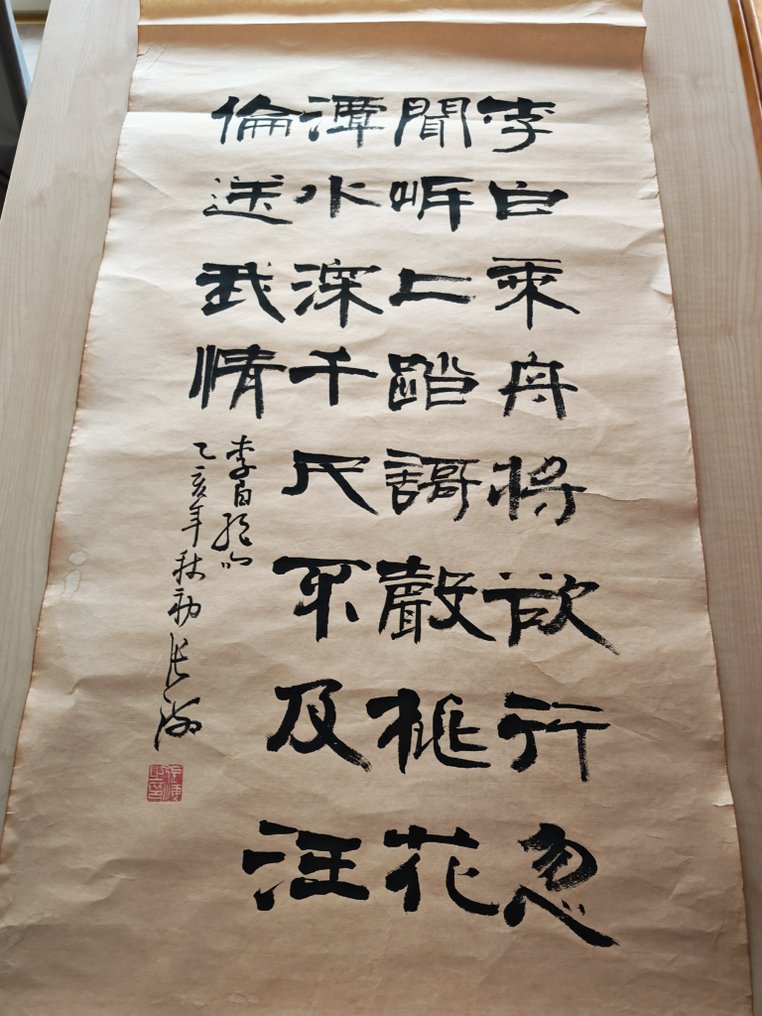 李白乘舟将欲行忽
聞岸上踏謌聲桃花
潭水深千尺不及汪
倫送我情
李白絕句
乙亥年秋初張